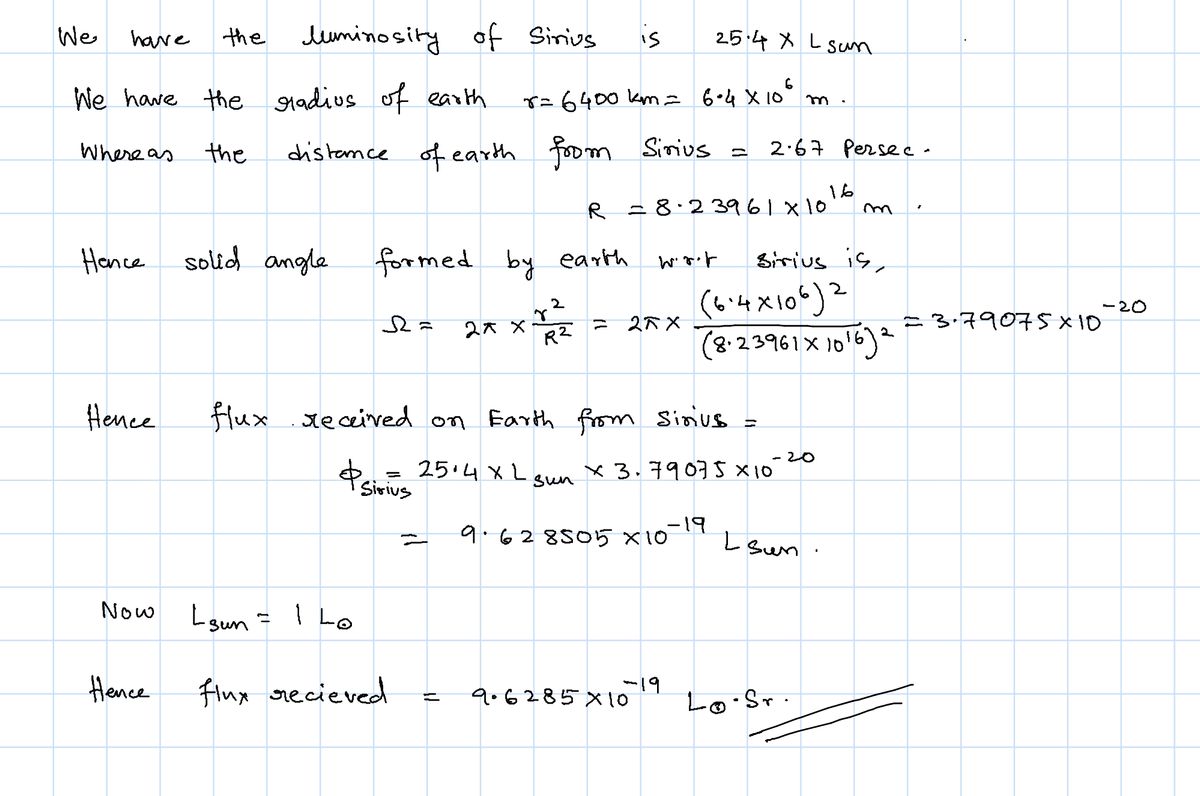 We have the luminosity of Sirius is 25.4 × L sun
We have the radius of earth r = 6400 km = 6.4 × 10⁶ m.
Whereas the distance of earth from Sirius = 2.67 Persec.
R = 8.23961 × 10¹⁶ m.
Hence solid angle formed by earth w.r.t Sirius is,
Ω = 2π × r²/R² = 2π × (6.4×10⁶)²/(8.23961×10¹⁶)² = 3.79075 × 10⁻²⁰
Hence flux received on Earth from Sirius =
ϕ Sirius = 25.4 × L sun × 3.79075 × 10⁻²⁰
= 9.628505 × 10⁻¹⁹ L sun.
Now L sun = 1 L⊙
Hence flux recieved = 9.6285 × 10⁻¹⁹ L⊙.Sr.